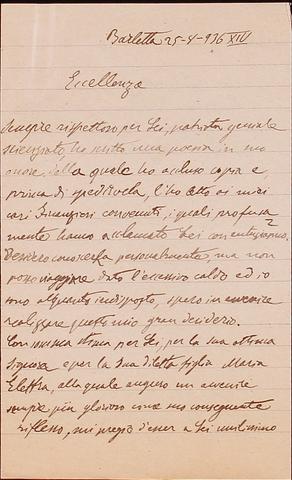 Barletta 25-4-936 XIV
Eccellenza
Sempre rispettoso per Lei, patriota geniale
scienziato, ho scritto una poesia in suo
onore della quale ho accluso copia e,
prima di spedirvela, l'ho letta ai miei
cari convenuti, i quali profusa
mente hanno acclamato Lei con entusiasmo.
Desidero conoscerla personalmente, ma non
posso viaggiare dato l'eccessivo caldo ed io
sono alquanto indisposto, spero in avvenire
realizzare questo mio gran desiderio.
Con massima stima per Lei, per la sua ottima
Signora e per la Sua diletta figlia Maria
Elettra, alla quale auguro un avvenire
sempre più glorioso come suo conseguente
riflesso, mi pregio d'esser a Lei umilissimo